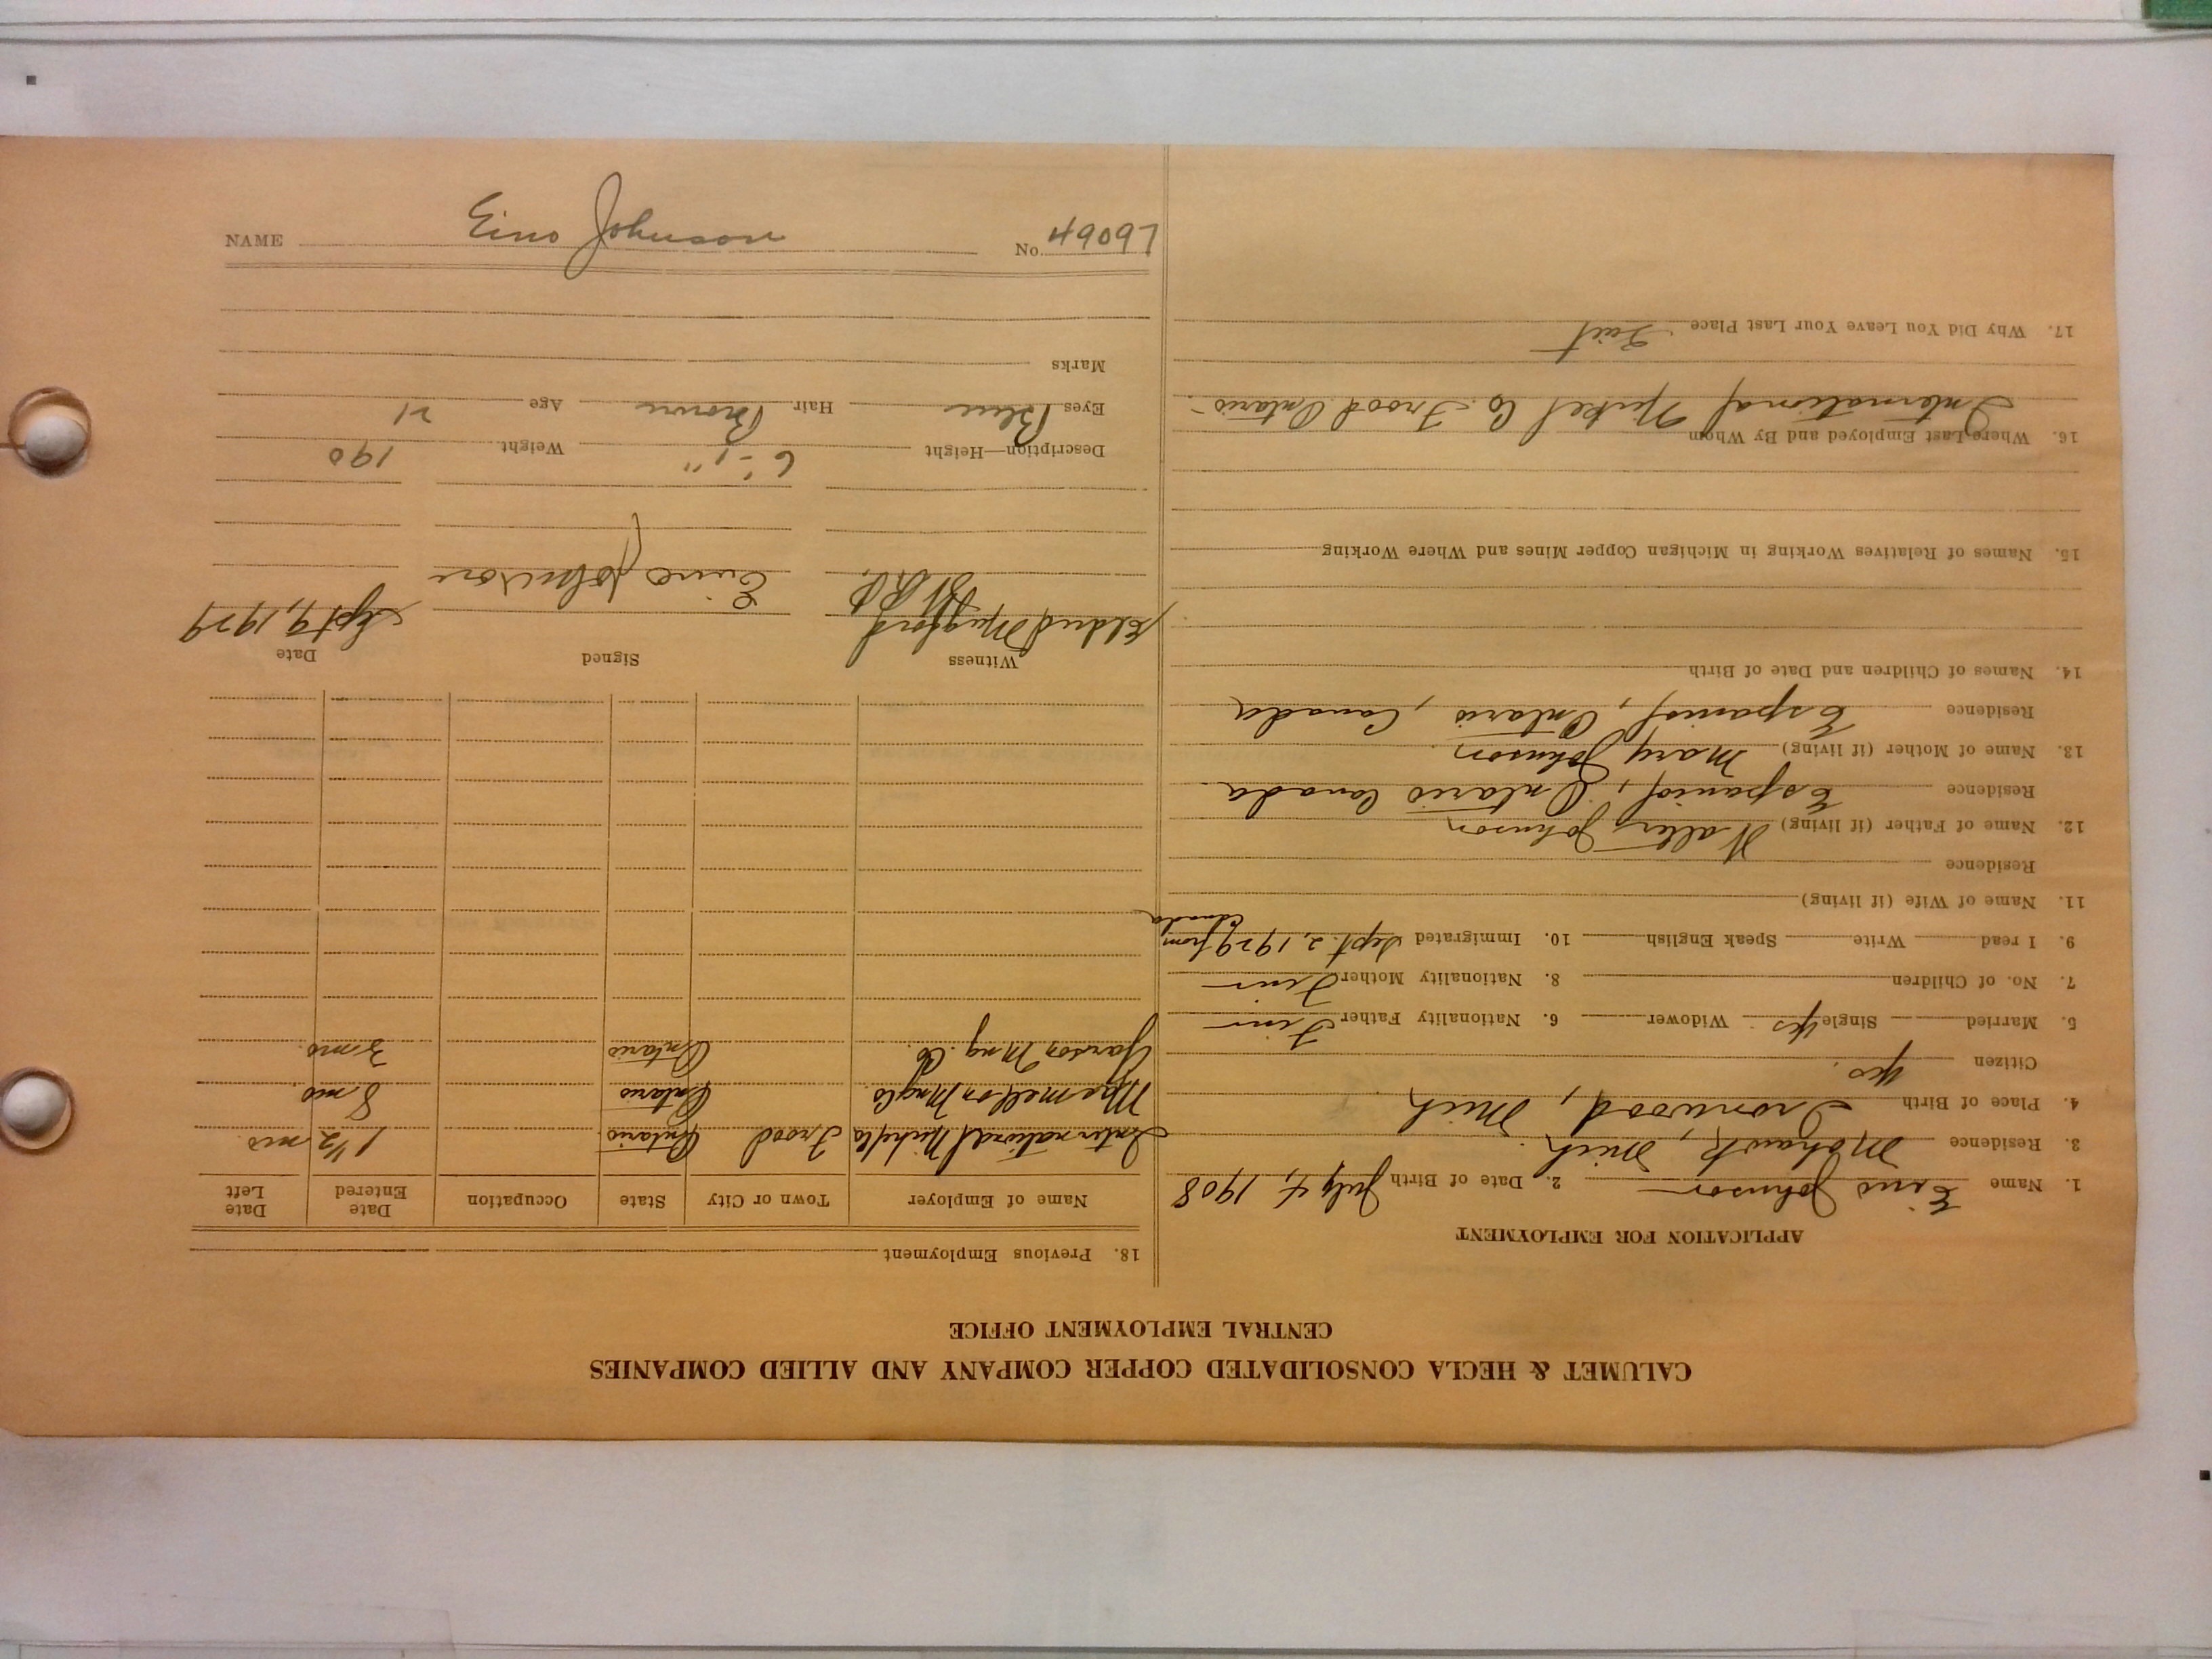 CALUMET & HECLA CONSOLIDATED COPPER COMPANY AND ALLIED COMPANIES
CENTRAL EMPLOYMENT OFFICE
APPLICATION FOR EMPLOYMENT
1. Name Eino Johnson 2. Date of Birth July 4, 1908
3. Residence Mohawk, Mich.
4. Place of Birth Ironwood, Mich
Citizen Yes.
5. Married Single Yes Widower 6. Nationality Father Finn
7. No. of Children 8. Nationality Mother Finn
9. I read Write Speak English 10. Immigrated Sept. 2, 1929 from Canada
11. Name of Wife (if living)
Residence
12. Name of Father (if living) Walter Johnson
Residence Espaniol, Ontario Canada
13. Name of Mother (if living) Mary Johnson
Residence Espaniol, Ontario, Canada
14. Names of Children and Date of Birth
15. Names of Relatives Working in Michigan Copper Mines and Where Working
16. Where Last Employed and By Whom
International Nickel Co. Frood Ontario
17. Why Did You Leave Your Last Place Quit
18. Previous Employment
Name of Employer Town or City State Occupation Date Entered Date Left
International Nickel Co Frood Ontario 1 1/2 mo.
Mng Co Ontario 8 mo.
Garson Mng. Co. Ontario 3 mo.
Witness Signed Date
Eldred Mugford Eino Johnson Sept 9, 1929
Description—Height 6'-1" Weight 190
Eyes Blue Hair Brown Age 21
Marks
NAME Eino Johnson No. 49097